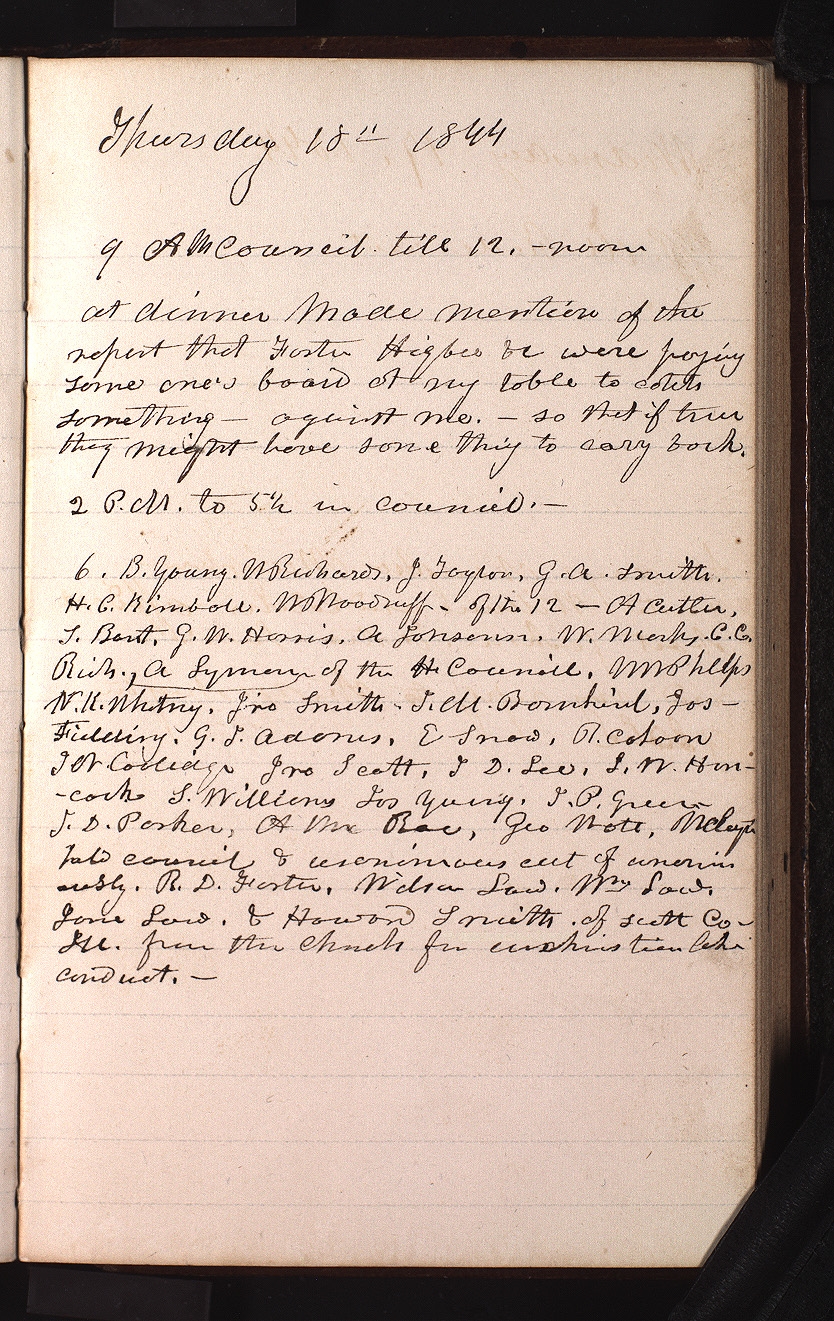 Thursday 18" 1844
9 AM Council till 12. - noon
at dinner Made mention of the
report that Foster Higbee &c were paying
some one's board at my table to catch
something - against me. - so that if true
they might have some thing to cary back.
2 P.M. to 5 1/2 in council. -
6. B. Young. W Richards, J. Taylor, G. A. Smith.
H. C. Kimball. W Woodruff - of the 12 - A Cutler,
S. Bent, G. W. Harris, A Johnson. W. Marks. C. C.
Rich., A Lyman of the H Council, W W Phelps
N. K. Whitney, Jno Smith. J. M. Bernhisel, Jos-
Fielding. G. J. Adams, E Snow, R. Cahoon
J W Coolidge Jno Scott, J D. Lee, L. W. Han-
-cock S. Williams Jos Young. J. P. Green
J. D. Parker, A McRae, Geo Watt, W Clayton
held council & unanimous cut of unanim
ously. R. D. Foster, Wilson Law. Wm Law.
Jane Law. & Howard Smith. of Scott Co-
Ill. from the Church for unchristian like
conduct. -